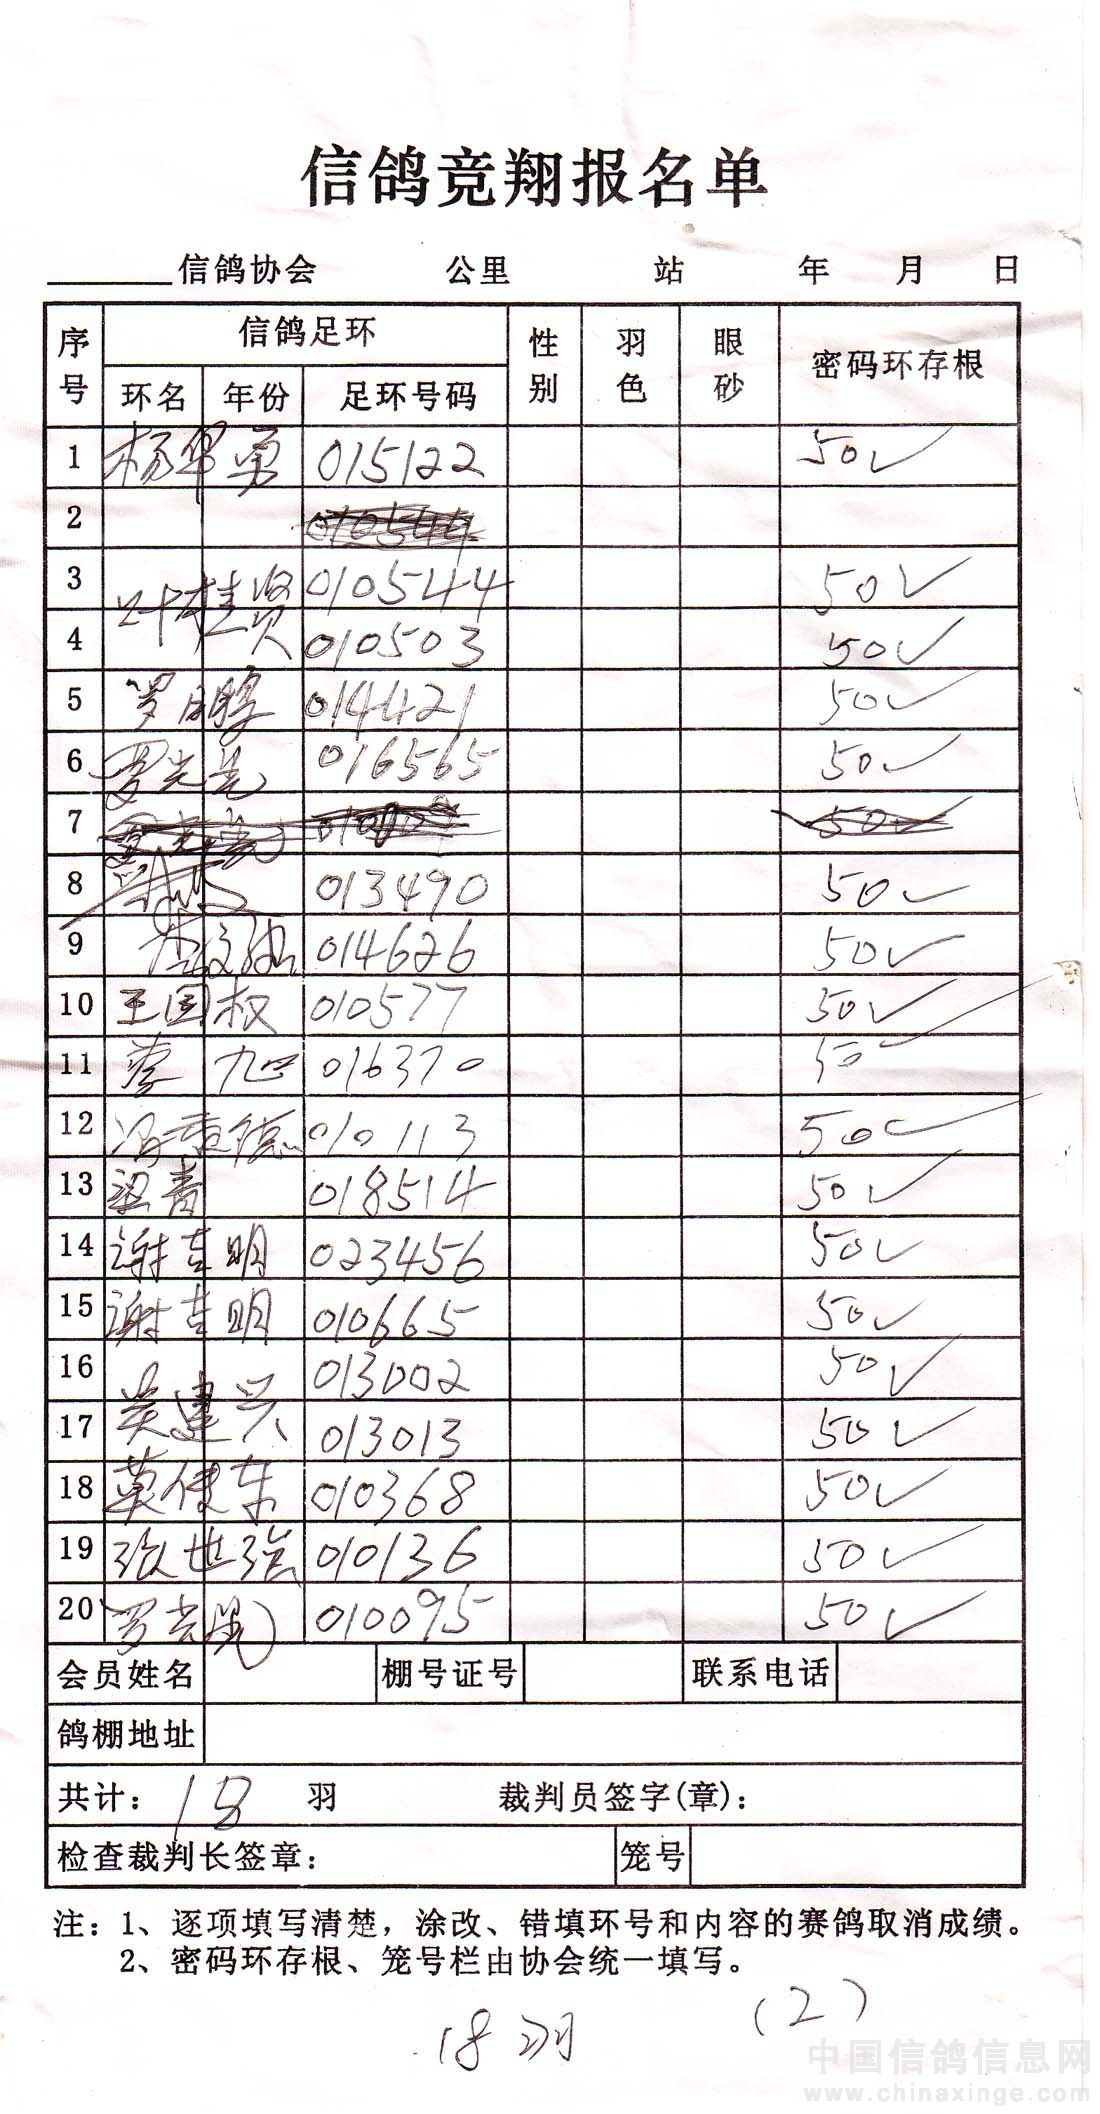 信鸽竞翔报名单
信鸽协会 公里 站 年 月 日
序号 信鸽足环 性别 羽色 眼砂 密码环存根
环名 年份 足环号码
1 杨军勇 015122 50✓
2 010544
3 叶桂贤 010544 50✓
4 010503 50✓
5 罗 014421 50✓
6 罗光 016565 50✓
7 50✓
8 013490 50✓
9 014626 50✓
10 王国权 010577 50✓
11 旭 016370 50✓
12 冯 德 010113 50✓
13 梁青 018514 50✓
14 谢吉明 023456 50✓
15 谢吉明 010665 50✓
16 吴建兴 013002 50✓
17 013013 50✓
18 莫健东 010368 50✓
19 张世强 010136 50✓
20 罗光 010095 50✓
会员姓名 棚号证号 联系电话
鸽棚地址
共计: 18 羽 裁判员签字(章):
检查裁判长签章: 笼号
注: 1、逐项填写清楚，涂改、错填环号和内容的赛鸽取消成绩。
2、密码环存根、笼号栏由协会统一填写。
18羽 (2)
中国信鸽信息网
www.chinaxinge.com